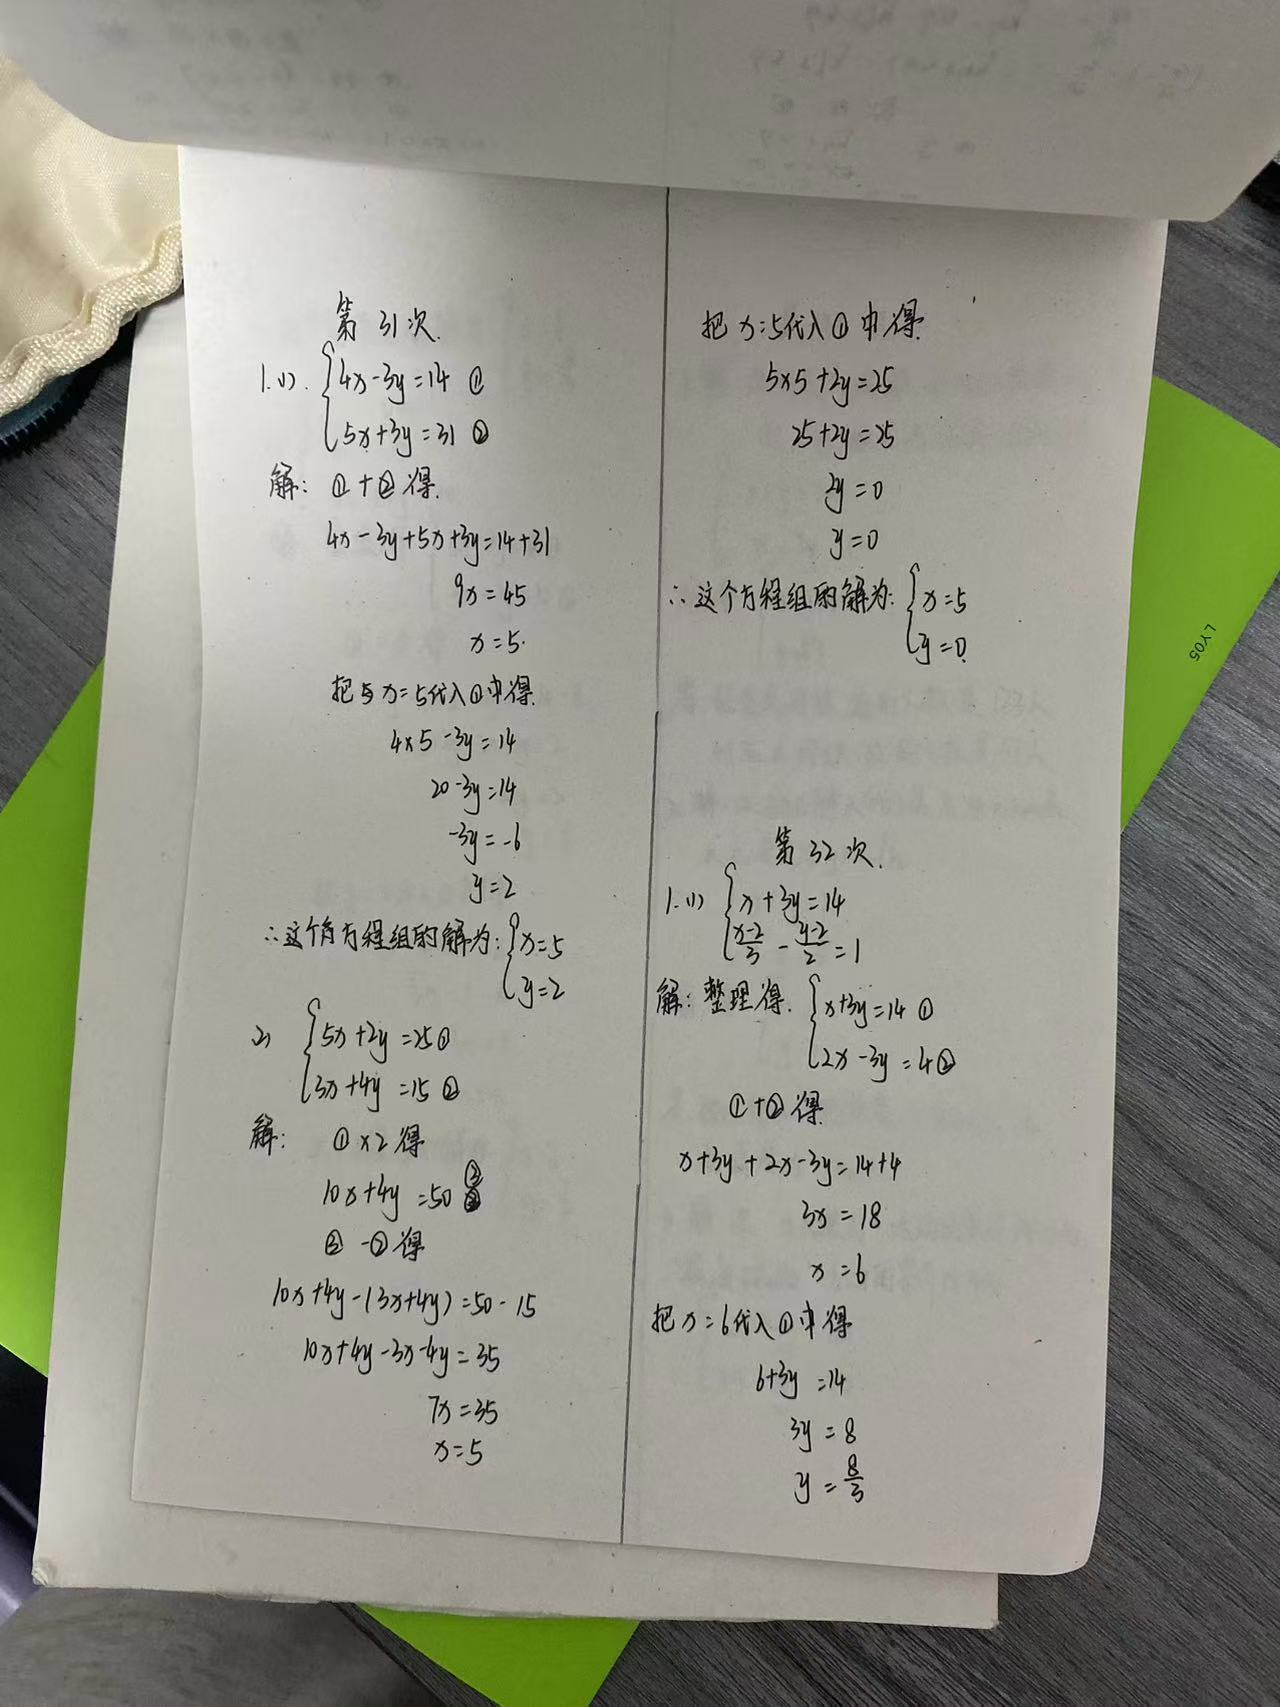 第31次.
1.(1). {4x-3y=14 ①
5x+3y=31 ②
解: ①+②得.
4x-3y+5x+3y=14+31
9x=45
x=5.
把x=5代入①中得.
4×5-3y=14
20-3y=14
-3y=-6
y=2
∴这个方程组的解为: {x=5
y=2
2) {5x+2y=25①
3x+4y=15②
解: ①×2得
10x+4y=50③
③-②得
10x+4y-(3x+4y)=50-15
10x+4y-3x-4y=35
7x=35
x=5
把x=5代入①中得.
5×5+2y=25
25+2y=25
2y=0
y=0
∴这个方程组的解为: {x=5
y=0.
第32次.
1.(1) {x+3y=14
(x-2)/3-(y-2)/2=1
解: 整理得. {x+3y=14①
2x-3y=4②
①+②得.
x+3y+2x-3y=14+4
3x=18
x=6
把x=6代入①中得
6+3y=14
3y=8
y=8/3
LY05